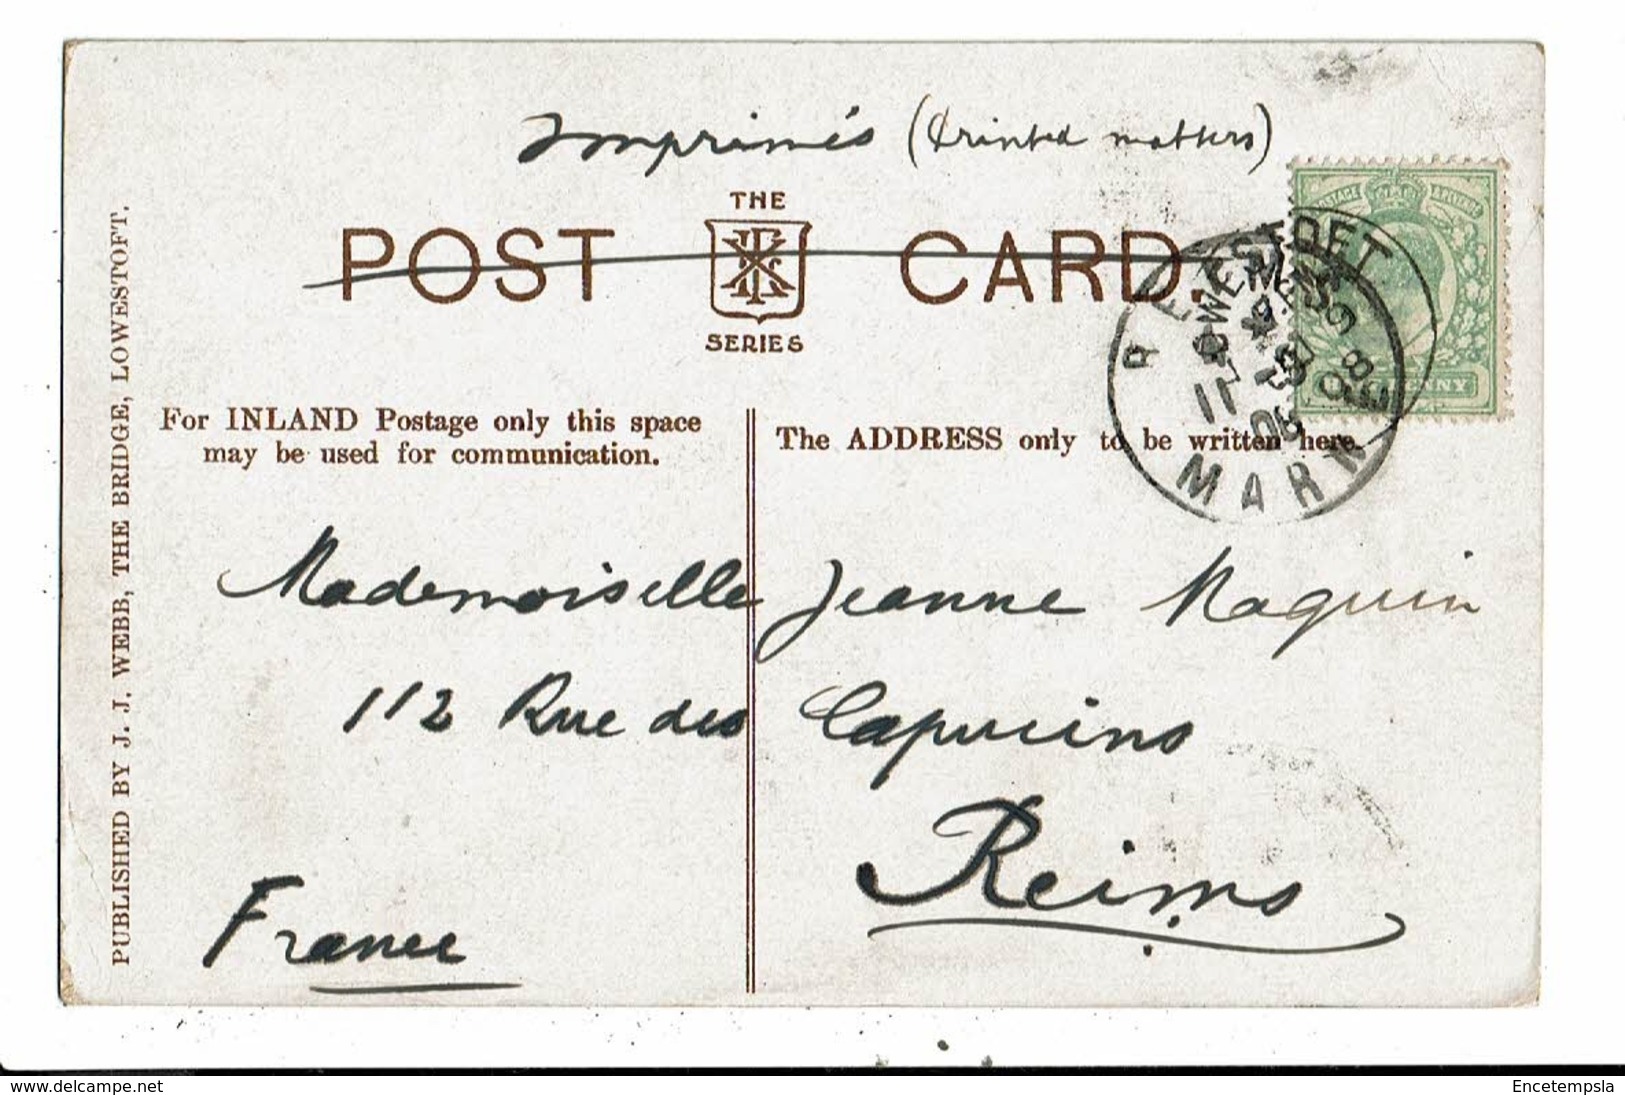 Imprimés (Printed matters)
THE
POST CARD.
SERIES
For INLAND Postage only this space
may be used for communication.
The ADDRESS only to be written here.
PUBLISHED BY J. J. WEBB, THE BRIDGE, LOWESTOFT.
LOWESTOFT
REIMS
MARNE
Mademoiselle Jeanne Maquin
112 Rue des Capucins
Reims
France
www.delcampe.net
Encetempsla